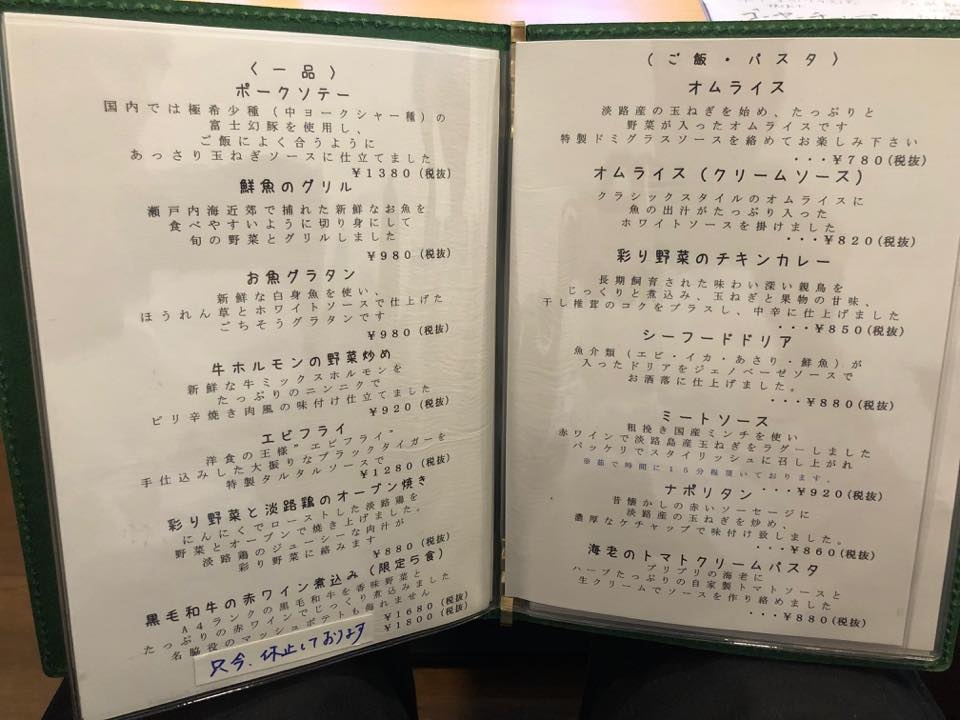 〈一品〉
ポークソテー
国内では極希少種（中ヨークシャー種）の
富士幻豚を使用し、
ご飯によく合うように
あっさり玉ねぎソースに仕立てました
￥1380(税抜)
鮮魚のグリル
瀬戸内海近郊で捕れた新鮮なお魚を
食べやすいように切り身にして
旬の野菜とグリルしました
￥980(税抜)
お魚グラタン
新鮮な白身魚を使い、
ほうれん草とホワイトソースで仕上げた
ごちそうグラタンです
￥980(税抜)
牛ホルモンの野菜炒め
新鮮な牛ミックスホルモンを
たっぷりのニンニクで
ピリ辛焼き肉風の味付け仕立てました
￥920(税抜)
エビフライ
洋食の王様"エビフライ"
手仕込みした大振りなブラックタイガーを
特製タルタルソースで
￥1280(税抜)
彩り野菜と淡路鶏のオーブン焼き
にんにくでローストした淡路鶏を
野菜とオーブンで焼き上げました。
淡路鶏のジューシーな肉汁が
彩り野菜に絡みます
￥880(税抜)
黒毛和牛の赤ワイン煮込み(限定5食)
A4ランクの黒毛和牛を香味野菜と
たっぷりの赤ワインでじっくり煮込みました
名脇役のマッシュポテトも侮れません
￥1680(税抜)
￥1800(税抜)
只今、休止しております
(ご飯・パスタ)
オムライス
淡路産の玉ねぎを始め、たっぷりと
野菜が入ったオムライスです
特製ドミグラスソースを絡めてお楽しみ下さい
・・・￥780(税抜)
オムライス(クリームソース)
クラシックスタイルのオムライスに
魚の出汁がたっぷり入った
ホワイトソースを掛けました
・・・￥820(税抜)
彩り野菜のチキンカレー
長期飼育された味わい深い親鳥を
じっくりと煮込み、玉ねぎと果物の甘味、
干し椎茸のコクをプラスし、中辛に仕上げました
・・・￥850(税抜)
シーフードドリア
魚介類（エビ・イカ・あさり・鮮魚）が
入ったドリアをジェノベーゼソースで
お洒落に仕上げました。
・・・￥880(税抜)
ミートソース
粗挽き国産ミンチを使い
赤ワインで淡路島産玉ねぎをラグーしました
パッケリでスタイリッシュに召し上がれ
※茹で時間に15分程頂いております。
・・・￥920(税抜)
ナポリタン
昔懐かしの赤いソーセージに
淡路産の玉ねぎを炒め、
濃厚なケチャップで味付け致しました。
・・・￥860(税抜)
海老のトマトクリームパスタ
プリプリの海老に
ハーブたっぷりの自家製トマトソースと
生クリームでソースを作り絡めました
・・・￥880(税抜)